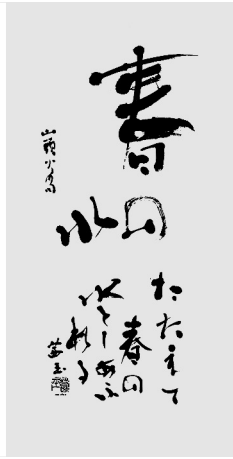 春の
水
山頭火の句
たたえて
春の
水としあふ
れる